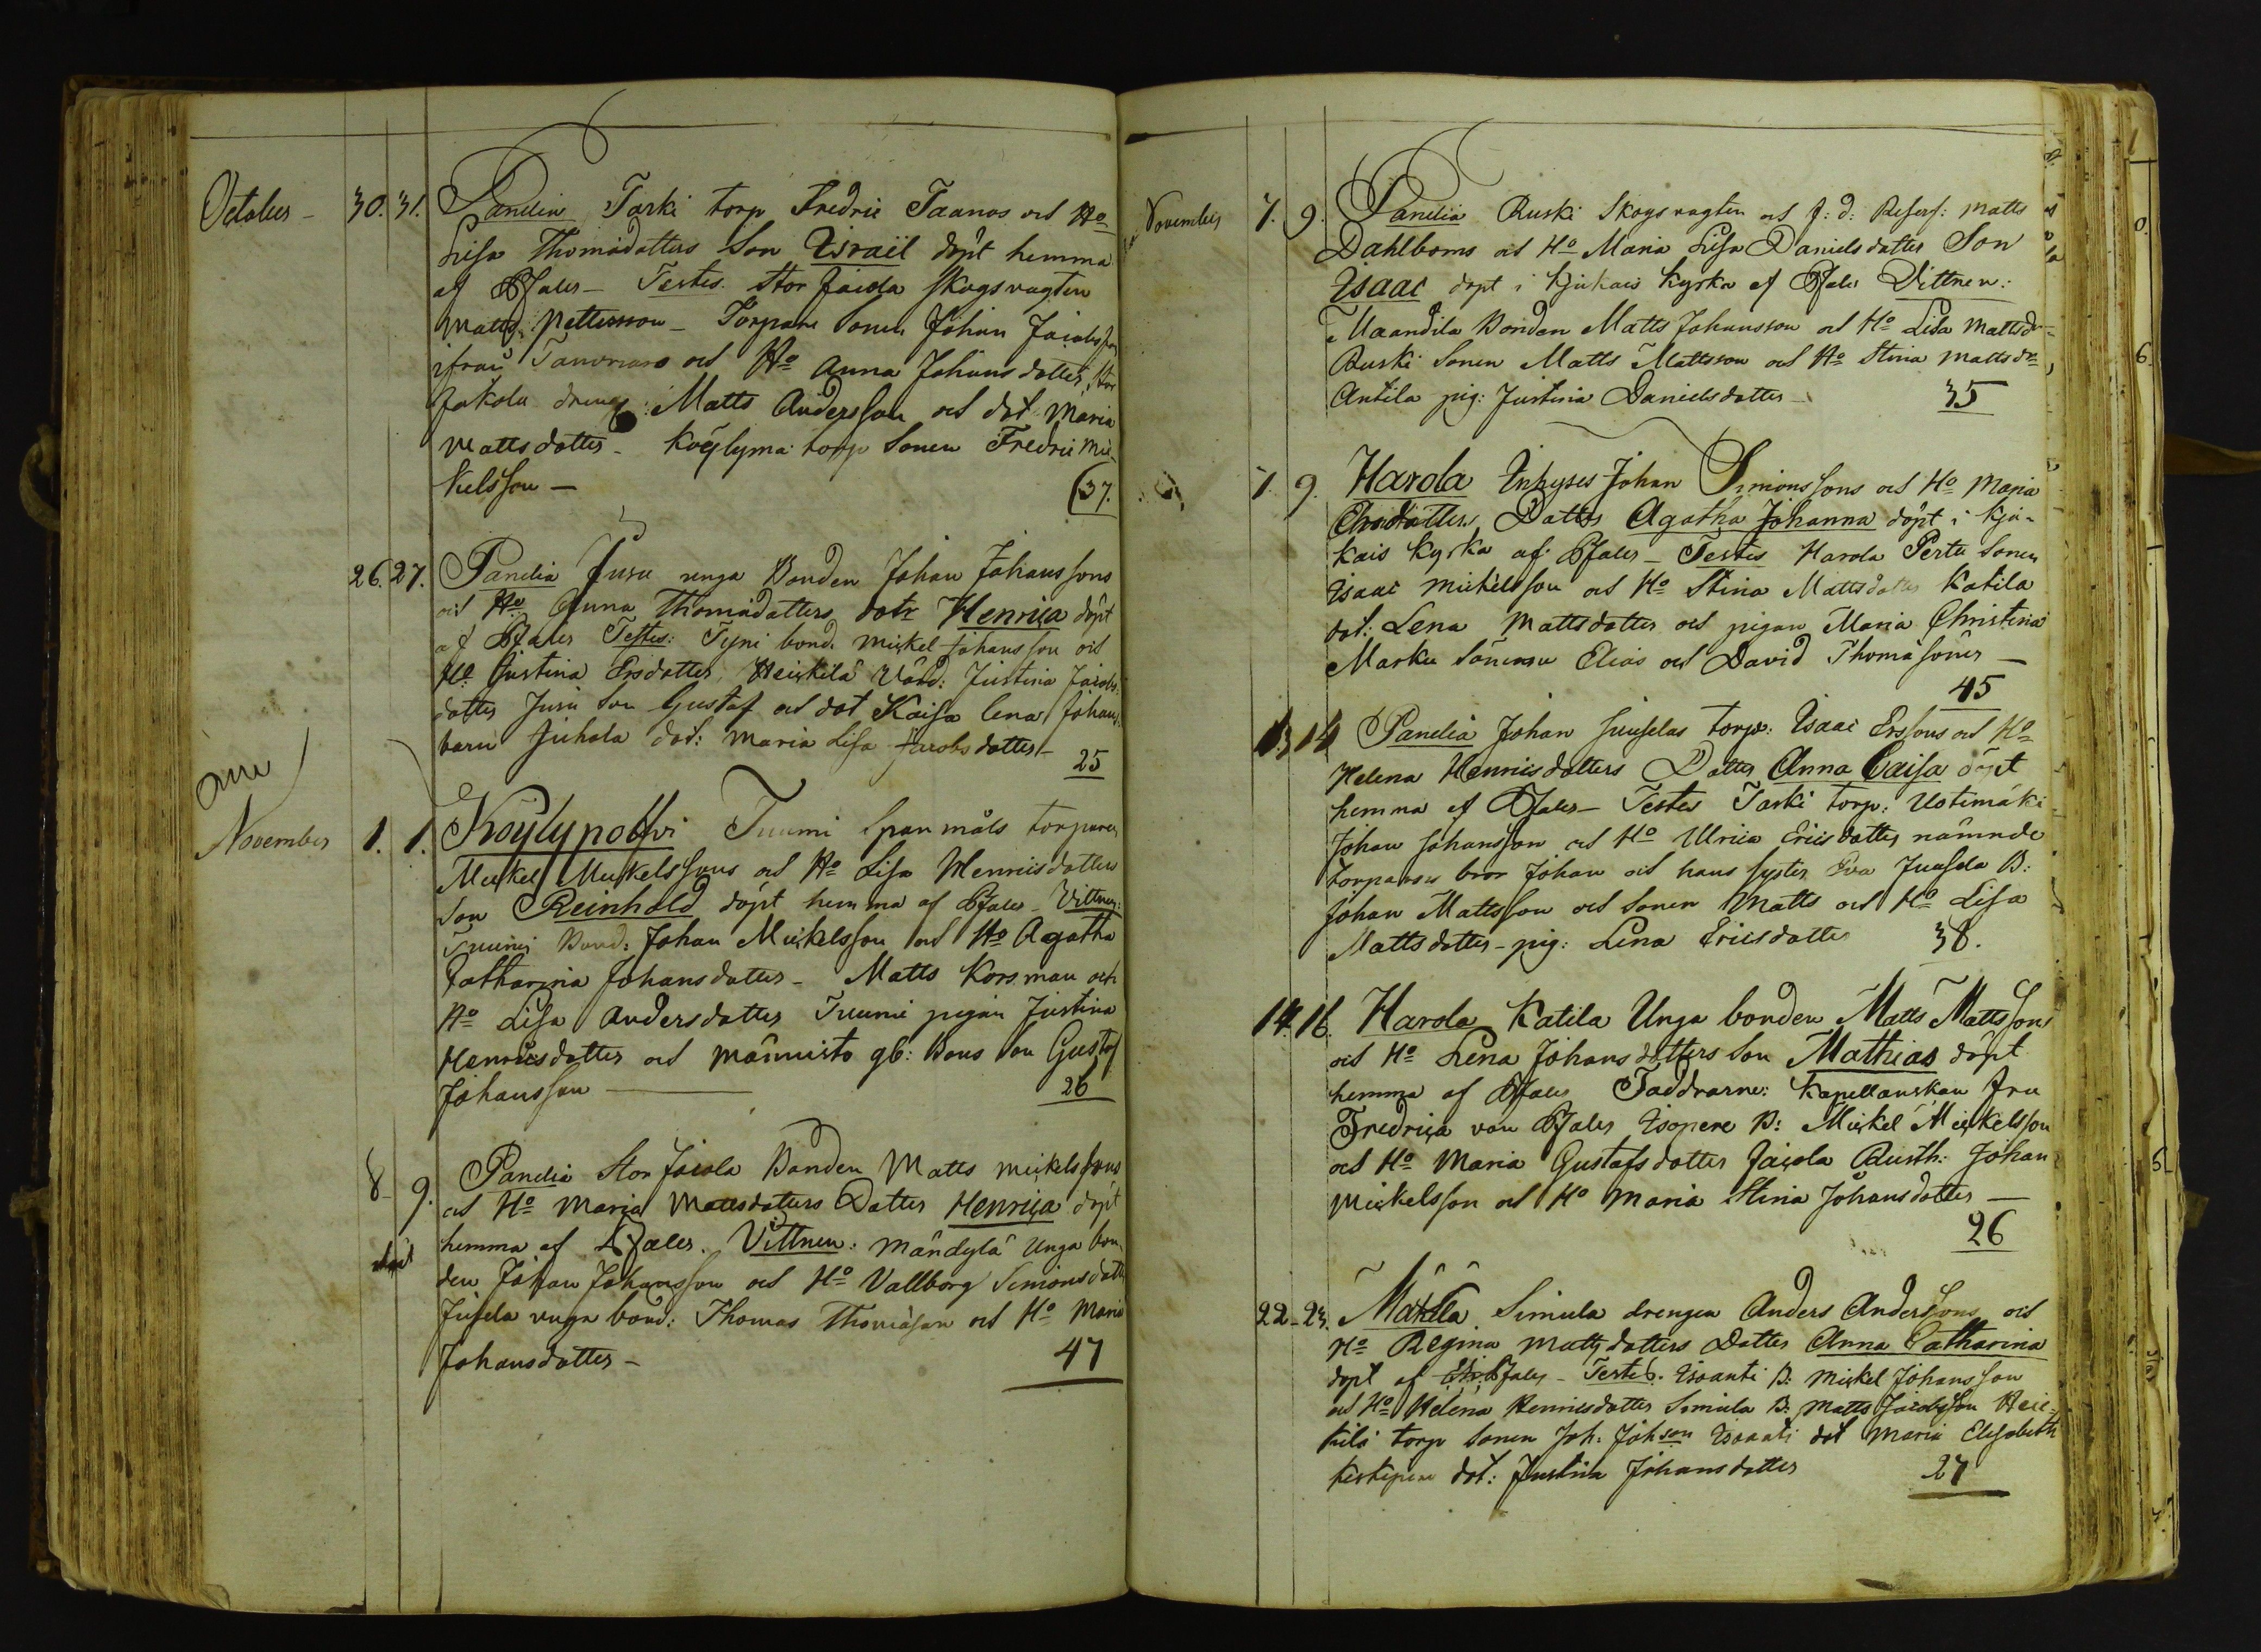 October - 30. 31. Panelia Tarki torp Fredric Taanos och Ho
Lisa Thomädotters Son Israël döpt hemma
af Pfaler - Testes. Stor Jaiola Skogsvagten
Matts Pettersson - Torpare Sonen Johan Jacobsson
ifrån och Ho Anna Johansdotter, Stor
Jakola dreng: Matts Andersson och dot Maria
Mattsdotter - Köylymä torp Sonen Fredric Mic-
kelsson - 37.
26. 27. Panelia Jusu unga Bonden Johan Johanssons
och Ho Anna Thomädotters dotr Henrica döpt
af Pfaler Testes: Tyni bond. Mickel Johansson och
Ho Justina Ersdotter, Heickilä Värd: Justina Jacobs
dotter Jusu Son Gustaf och dot Kaisa Lena Johans
barn Juhola dot: Maria Lisa Jacobsdotter - 25
November 1. 1. Köylypolfvi Tuumi Spanmåls torparen
Mickel Mickelssons och Ho Lisa Henricsdotters
Son Reinhold döpt hemma af Pfaler - Vittnen:
Tuumi Bond: Johan Mickelsson och Ho Agatha
Catharina Johansdotter - Matts Korsman och
Ho Lisa Andersdotter Tuumi pigan Justina
Henricsdotter och Männisto gb: Bons Son Gustaf
Johansson 26
8 - 9. Panelia Stor Jaiola Bonden Matts Mickelssons
och Ho Maria Mattsdotters Dotter Henrica döpt
hemma af Pfaler. Vittnen: Mändylä Unga bon
den Johan Johansson och Ho Vallborg Simonsdotter
Jusela unga bond: Thomas Thomasson och Ho Maria
Johansdotter - 47
November 7. 9. Panelia Ruski Skogsvagten och f: d: Reserf: Matts
Dahlboms och Ho Maria Lisa Danielsdotter Son
Isaac döpt i Kjukais Kyrka af Pfaler Vittnen:
Maandila Bonden Matts Johansson och Ho Lisa Mattsdr
Ruski Sonen Matts Mattsson och Ho Stina Mattsdr
Antila pig: Justina Danielsdotter - 35
7. 9. Harola Inhyses Johan Simonssons och Ho Maria
Dotter Agatha Johanna döpt i Kju-
kais Kyrka af Pfaler - Testes Harola Pertu Sonen
Isaac Mickelsson och Ho Stina Mattsdotter Katila
dot: Lena Mattsdotter och pigan Maria Christina
Marku Sönerne Elias och David Thomasöner -
45
13 14 Panelia Johan Juuselas torp: Isaac Erssons och Ho
Helena Henricsdotters Dotter Anna Caisa döpt
hemma af Pfaler - Testes Tarki torp: Uotimäki
Johan Johansson och Ho Ulrica Ericsdotter, nämnde
torparens bror Johan och hans syster Eva Juusela B:
Johan Mattsson och Sonen Matts och Ho Lisa
Mattsdotter - pig: Lena Ericsdotter 38.
14. 16. Harola Katila Unga bonden Matts Mattssons
och Ho Lena Johansdotters Son Mathias döpt
hemma af Pfaler Faddrarne: Kapellanskan Fru
Fredrica von Pfaler Isopere B: Mickel Mickelsson
och Ho Maria Gustafsdotter Jaiola Rusth: Johan
Mickelsson och Ho Maria Stina Johansdotter -
26
22 - 23. Mäkilä Simula drengen Anders Anderssons och
Ho Regina Mattsdotters Dotter Anna Catharina
döpt af Pfaler - Testes. Isoanti B: Mickel Johansson
och Ho Helena Henricsdotter Simula B: Matts Jacobsson Heic-
kilä torp Sonen Joh: Johson Isoanti dot Maria Elisabeth
dot: Justina Johansdotter 27